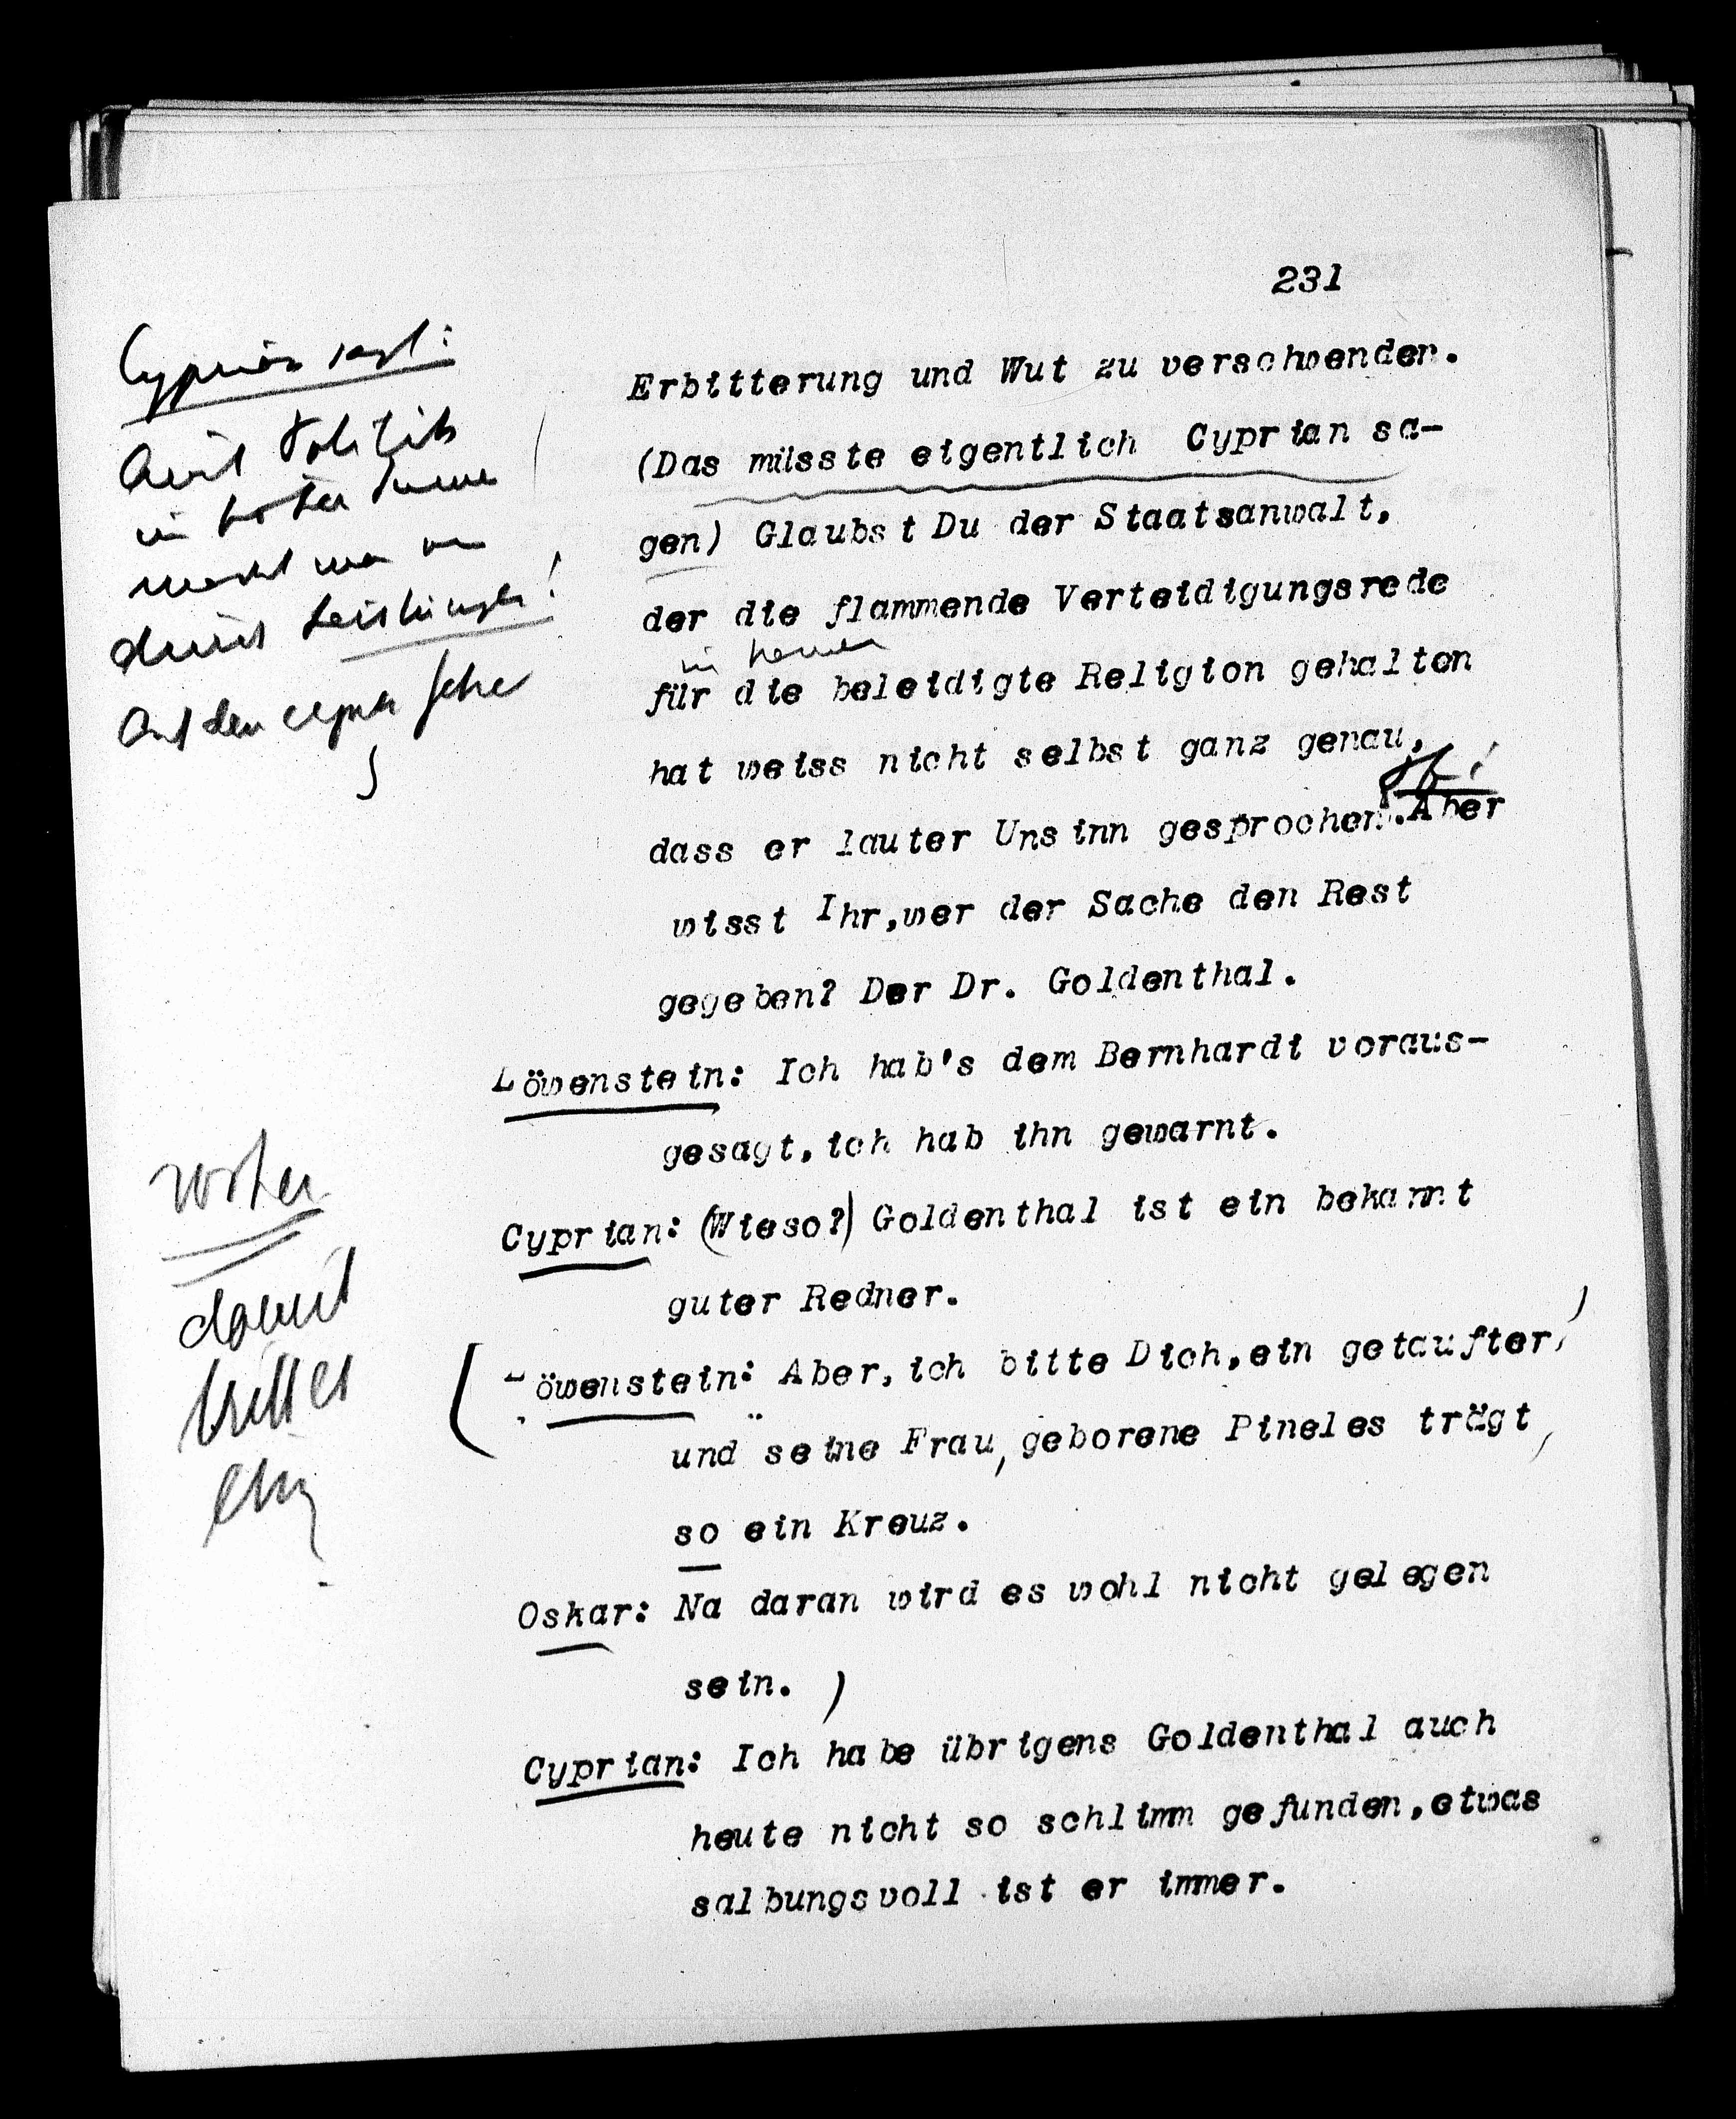 231
Erbitterung und Wut zu verschwenden.
(Das müsste eigentlich Cyprian sa-
gen) Glaubst Du der Staatsanwalt,
der die flammende Verteidigungsrede
für die beleidigte Religion gehalten
hat weiss nicht selbst ganz genau,
dass er lauter Unsinn gesprochen. Aber
wisst Ihr,wer der Sache den Rest
gegeben? Der Dr. Goldenthal.
Löwenstein: Ich hab's dem Bernhardi voraus-
gesagt,ich hab ihn gewarnt.
Cyprian: (Wieso?) Goldenthal ist ein bekannt
guter Redner.
(Löwenstein: Aber,ich bitte Dich,ein getaufter,
und seine Frau, geborene Pineles trägt,
so ein Kreuz.
Oskar: Na daran wird es wohl nicht gelegen
sein. )
Cyprian: Ich habe übrigens Goldenthal auch
heute nicht so schlimm gefunden,etwas
salbungsvoll ist er immer.
Cyprian sagt:
Politik
in
durch Leistungen!
Auf der
damit